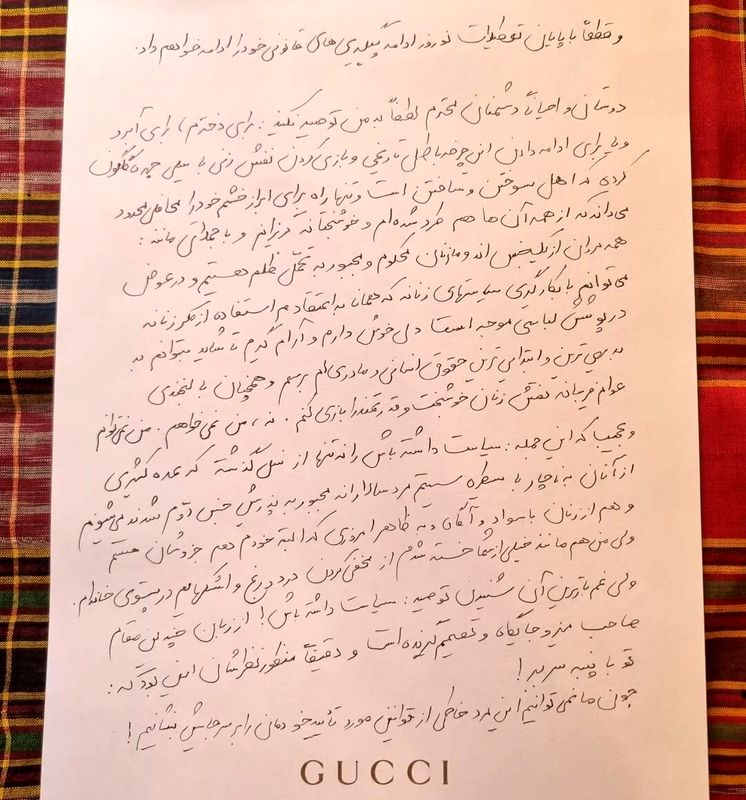 و قطعاً با پایان تعطیلات نوروز ادامه پیگیری‌های قانونی خود را ادامه خواهم داد.
دوستان و احیاناً دشمنان محترم لطفاً به من توصیه نکنید: برای دخترم، برای آبرو
و یا برای ادامه دادن این چرخه باطل تاریخی و بازی کردن نقش زنی با سیلی چهره گلگون
کرده که اهل سوختن و ساختن است و تنها راه برای ابراز خشم خود را محافل محدود
می‌داند که از همه آن‌ها هم طرد شده‌ام و خوشبختانه گریزانم و با جملاتی مانند:
همه مردان از یک جنس‌اند و ما زنان محکوم و مجبور به تحمّل ظلم هستیم و در عوض
می‌توانم با بکارگیری سیاستهای زنانه که همانا به اعتقادم استفاده از مکر زنانه
در پوشش لباسی موجه است دل خوش دارم و آرام گیرم تا شاید بتوانم به
بدیهی‌ترین و ابتدایی‌ترین حقوق انسانی و مادری‌ام برسم و همچنان با لبخندی
عوام‌فریبانه نقش زنان خوشبخت و قدرتمند را بازی کنم. نه، من نمی‌خواهم. من نمی‌توانم
و عجیب که این جمله: سیاست داشته باش را نه تنها از نسل گذشته که عمده کثیری
از آنان به ناچار با سیطره سیستم مردسالارانه مجبور به پذیرش جنس دوّم شدند می‌شنوم
و هم از زنان باسواد و آگاه و به ظاهر امروزی که البته خودم هم جزوشان هستم
ولی من هم مانند خیلی از شما خسته شدم از مخفی کردن درد و رنج و اشکهایم در پستوی خانه‌ام.
ولی غم بارترین آن شنیدن توصیه: سیاست داشته باش! از زبان چندین مقام
صاحب میز و جایگاه و تصمیم گیرنده است و دقیقاً منظور نظرشان این بود که:
تو با پنبه سر ببر!
چون ما نمی‌توانیم این مرد خاطی از قوانین مورد تأیید خودمان را بر سر جایش بنشانیم!
GUCCI